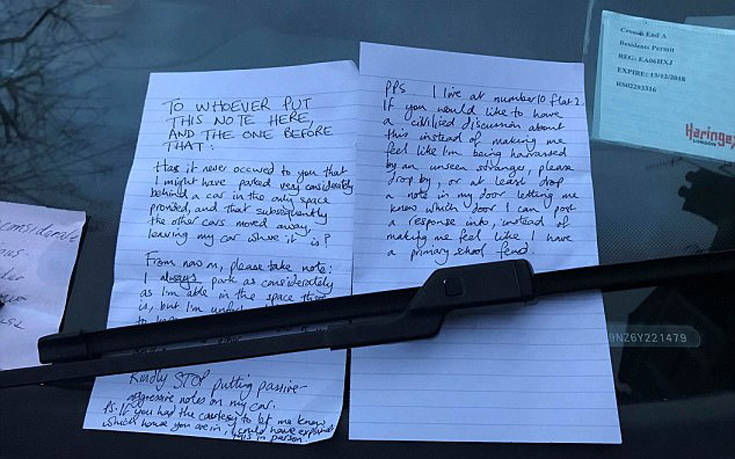 TO WHOEVER PUT
THIS NOTE HERE,
AND THE ONE BEFORE
THAT:
Has it never occured to you that
I might have parked very considerately
behind a car in the only space
provided, and that subsequently
the other cars moved away,
leaving my car where it is?
From now on, please take note:
I always park as considerately
as I'm able in the space there
is, but I'm
Kindly STOP putting passive-
aggressive notes on my car.
PS. If you had the courtesy to let me know
which house you are in, I could have explained
this in person.
PPS I live at number 10 flat 2.
If you would like to have
a civilised discussion about
this instead of making me
feel like I'm being harrassed
by an unseen stranger, please
drop by, or at least drop
a note in my door letting me
know which door I can post
a response into, instead of
making me feel like I have
a primary school feud.
Crouch End A
Residents Permit
REG: EA06HXJ
EXPIRE: 13/12/2018
HS02293316
Haringey
LONDON
9NZ6Y221479